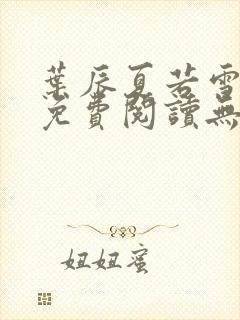 葉辰夏若雪
免費閱讀無
妞妞蜜